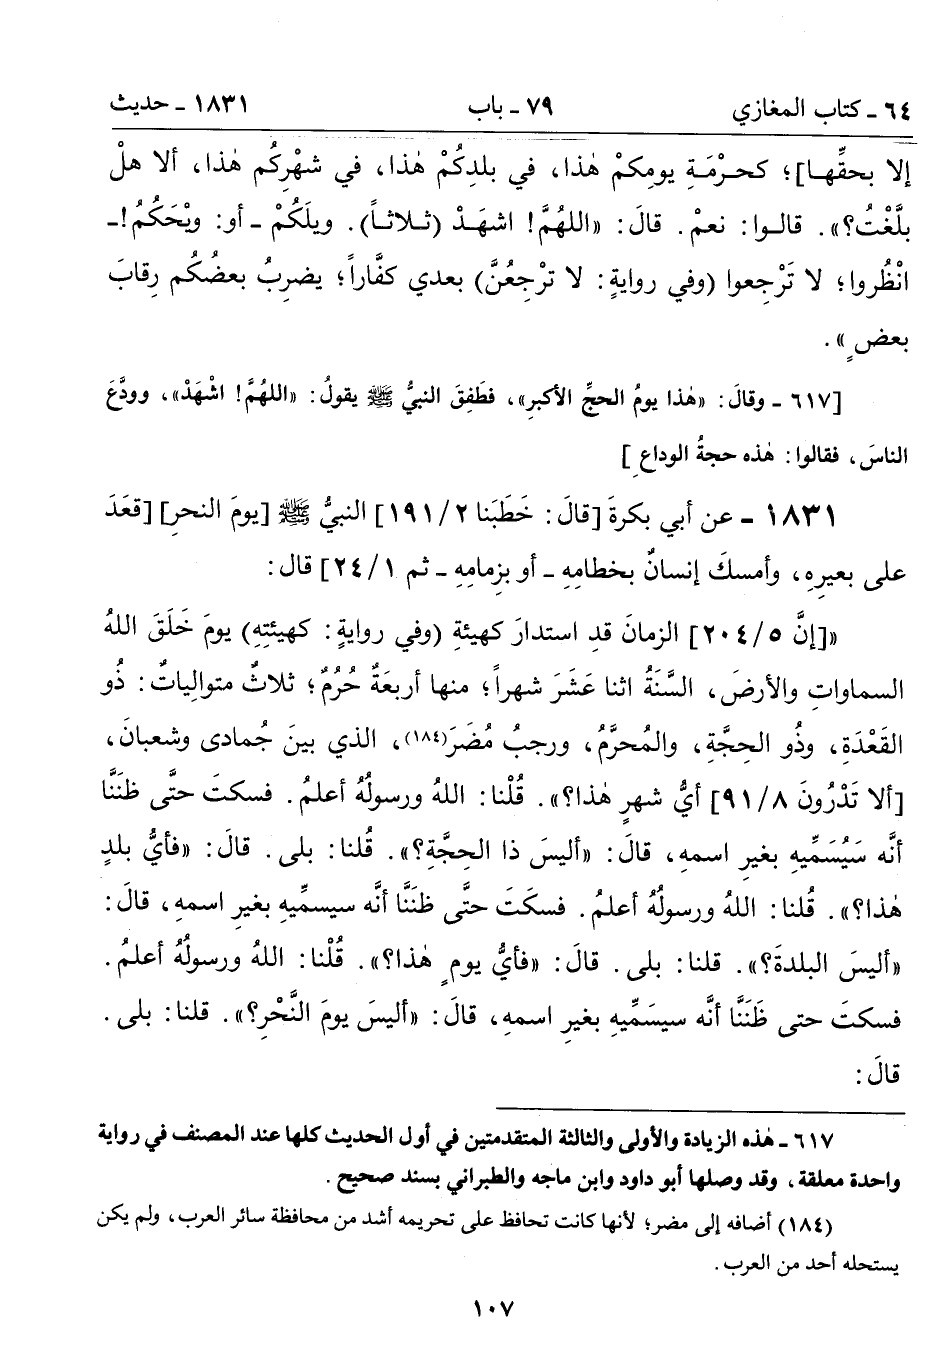 ٦٤ ـ كتاب المغازي ٧٩ ـ باب ١٨٣١ ـ حديث
إلا بحقِّهـا]؛ كحـرْمَـةِ يومِكمْ هٰذا، في بلدِكُمْ هٰذا، في شهْرِكُم هٰذا، ألا هلْ
بلَّغْتُ؟». قالـوا: نعمْ. قالَ: «اللهُمَّ! اشهَـدْ (ثـلاثـاً). ويلَكُمْ ـ أو: ويْحَكُمُ!ـ
انْظُروا؛ لا تَرْجِعوا (وفي روايةٍ: لا ترْجِعُنَّ) بعدي كفَّاراً؛ يضرِبُ بعضُكُم رِقابَ
بعضٍ».
[٦١٧ ـ وقالَ: «هٰذا يومُ الحجِّ الأكبرِ»، فطَفِقَ النبيُّ ﷺ يقولُ: «اللهُمَّ! اشْهَدْ»، وودَّعَ
الناسَ، فقالوا: هٰذه حجةُ الوداعِ]
١٨٣١ ـ عن أبي بكرةَ [قالَ: خَطَبَنا ١٩١/٢] النبيُّ ﷺ [يومَ النحرِ] [قعَدَ
على بعيرِهِ، وأمسكَ إنسانٌ بخطامِهِ ـ أو بزِمامِهِ ـ ثم ٢٤/١] قال:
«[إنَّ ٢٠٤/٥] الزمانَ قدِ استدارَ كهيئةِ (وفي روايةٍ: كهيئتِهِ) يومَ خَلَقَ اللهُ
السماواتِ والأرضَ، السَّنَةُ اثنا عَشَرَ شهراً؛ منها أربعَةٌ حُرُمٌ؛ ثلاثٌ متوالياتٌ: ذُو
القَعْدَةِ، وذُو الحِجَّةِ، والمُحرَّمُ، ورجبُ مُضَرَ(١٨٤)، الذي بينَ جُمادى وشعبانَ،
[ألا تَدْرُونَ ٩١/٨] أيُّ شهرٍ هٰذا؟». قُلْنا: اللهُ ورسولُهُ أعلمُ. فسكتَ حتَّى ظنَنَّا
أنَّه سَيُسَمِّيهِ بغيرِ اسمِهِ، قالَ: «أليسَ ذا الحِجَّةِ؟». قُلنا: بلى. قالَ: «فأيُّ بلدٍ
هٰذا؟». قُلنا: اللهُ ورسولُهُ أعلمُ. فسكَتَ حتَّى ظنَنَّا أنَّه سيسمِّيهِ بغيرِ اسمِهِ، قالَ:
«أليسَ البلدةَ؟». قلنا: بلى. قالَ: «فأيُّ يومٍ هذا؟». قُلْنا: اللهُ ورسولُهُ أعلمُ.
فسكتَ حتى ظَنَنَّا أنَّه سيسَمِّيهِ بغيرِ اسمِهِ، قالَ: «أليسَ يومَ النَّحْرِ؟». قلنا: بلى.
قالَ:
٦١٧ ـ هٰذه الزيادة والأولى والثالثة المتقدمتين في أول الحديث كلها عند المصنف في رواية
واحدة معلقة، وقد وصلها أبو داود وابن ماجه والطبراني بسند صحيح.
(١٨٤) أضافه إلى مضر؛ لأنها كانت تحافظ على تحريمه أشد من محافظة سائر العرب، ولم يكن
يستحله أحد من العرب.
١٠٧